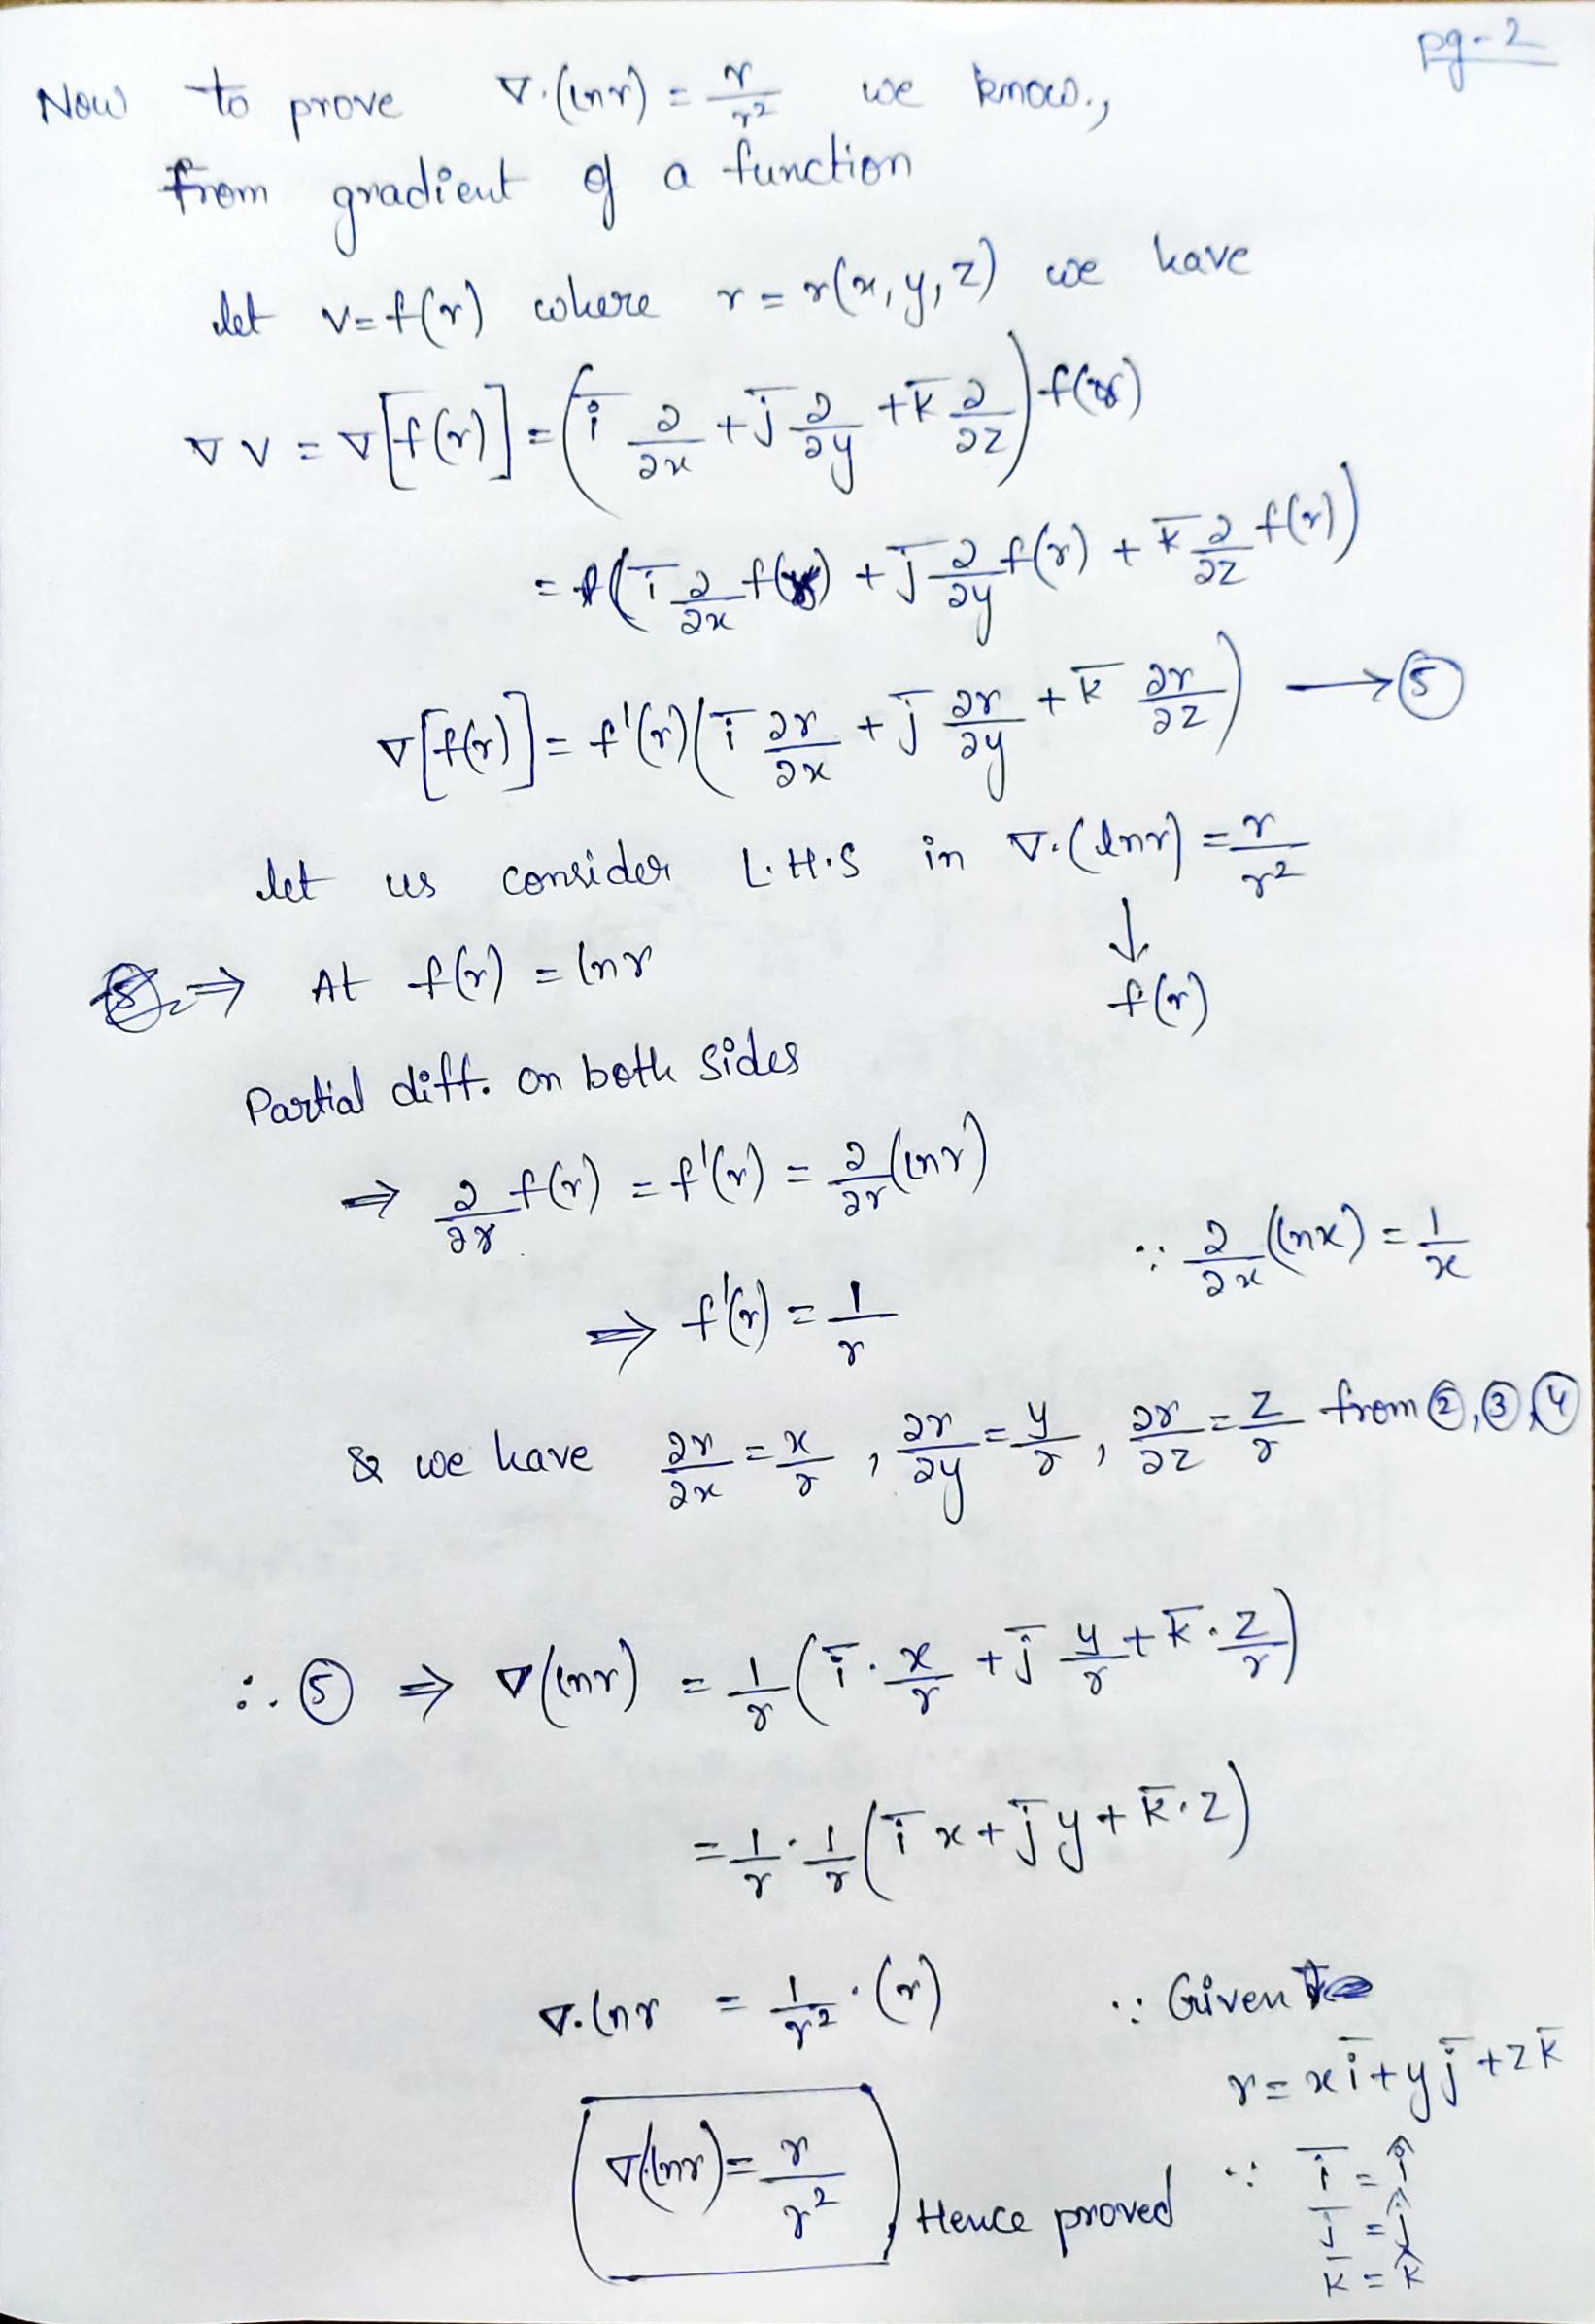 pg-2
Now to prove ∇.(lnr) = r/r² we know.,
from gradient of a function
let v=f(r) where r = r(x,y,z) we have
∇v = ∇[f(r)] = (i̅ ∂/∂x + j̅ ∂/∂y + k̅ ∂/∂z) f(r)
= (i̅ ∂/∂x f(r) + j̅ ∂/∂y f(r) + k̅ ∂/∂z f(r))
∇[f(r)] = f'(r)(i̅ ∂r/∂x + j̅ ∂r/∂y + k̅ ∂r/∂z) → ⑤
let us consider L.H.S in ∇.(lnr) = r/r²
↓
⇒ At f(r) = lnr
f(r)
Partial diff. on both sides
⇒ ∂/∂r f(r) = f'(r) = ∂/∂r (lnr)
∵ ∂/∂x (lnx) = 1/x
⇒ f'(r) = 1/r
& we have ∂r/∂x = x/r , ∂r/∂y = y/r , ∂r/∂z = z/r from ②,③,④
∴ ⑤ ⇒ ∇(lnr) = 1/r (i̅ . x/r + j̅ y/r + k̅ . z/r)
= 1/r . 1/r (i̅ x + j̅ y + k̅ . z)
∇.lnr = 1/r² . (r) ∵ Given
r = x i̅ + y j̅ + z k̅
∇(lnr) = r/r² Hence proved ∵ i̅ = î
j̅ = ĵ
k̅ = k̂